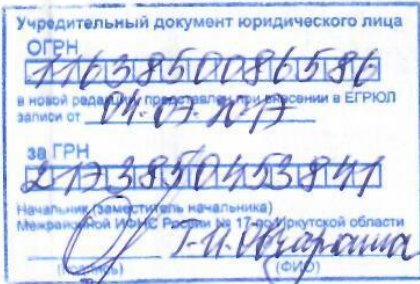 Учредительный документ юридического лица
ОГРН
1163850086586
в новой редакции, представлен при внесении в ЕГРЮЛ
записи от 04.07.2017
за ГРН
2173850453841
Начальник (заместитель начальника)
Межрайонной ИФНС России № 17 по Иркутской области
Т.И.
(подпись) (ФИО)